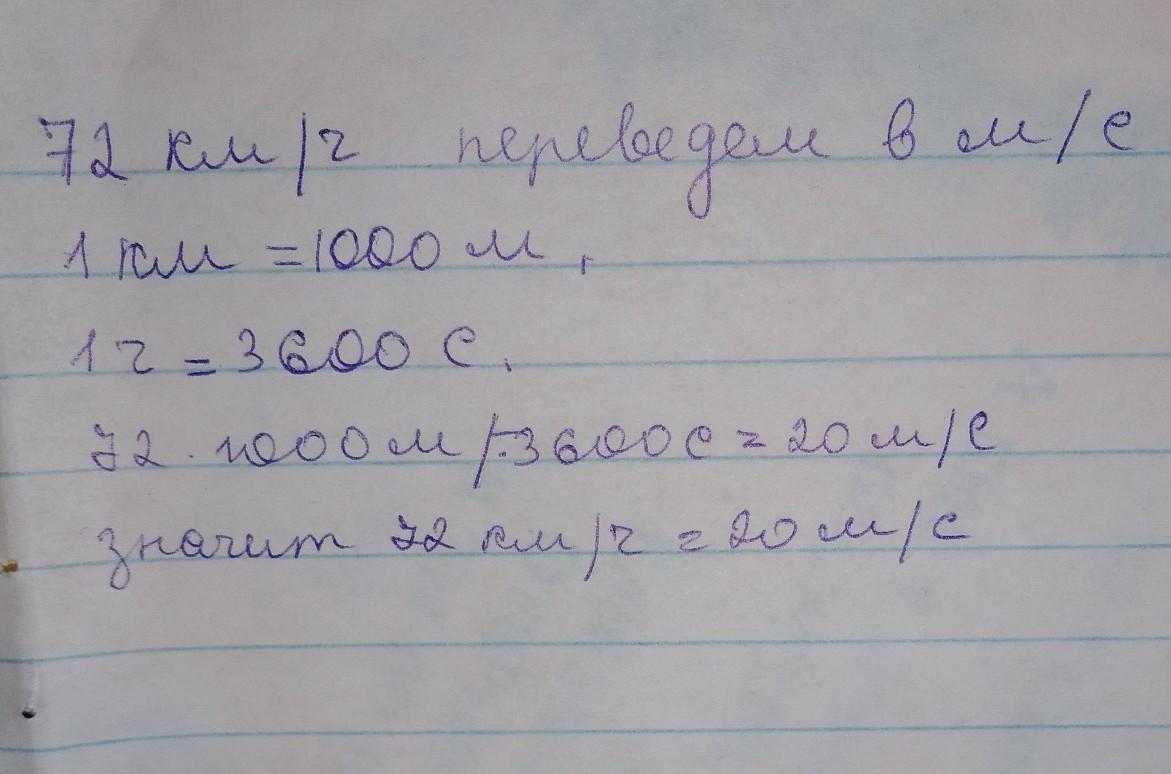 72 км/ч переведем в м/с
1 км = 1000 м,
1 ч = 3600 с.
72 · 1000 м / 3600 с = 20 м/с
значит 72 км/ч = 20 м/с